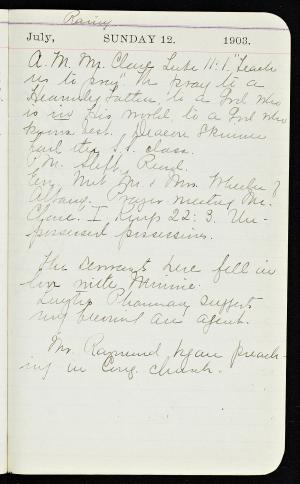 Rainy
July, SUNDAY 12. 1903.
A. M. Mr. Clair Luke 11:1 "Teach
us to pray" We pray to a
Heavenly Father, to a God who
is in His world, to a God who
knows best. Deacon Skinner
had the S. S. class.
P. M. Slept, Read.
Eve. Met Mr. & Mrs. Wheeler of
Albany. Prayer meeting Mr.
I Kings 22:3. Un-
possessed possessions.
The servants here fell in
love with Minnie.
Pharmacy suggests
my becoming an agent.
Mr. Raymond began preach-
ing in Cong. church.